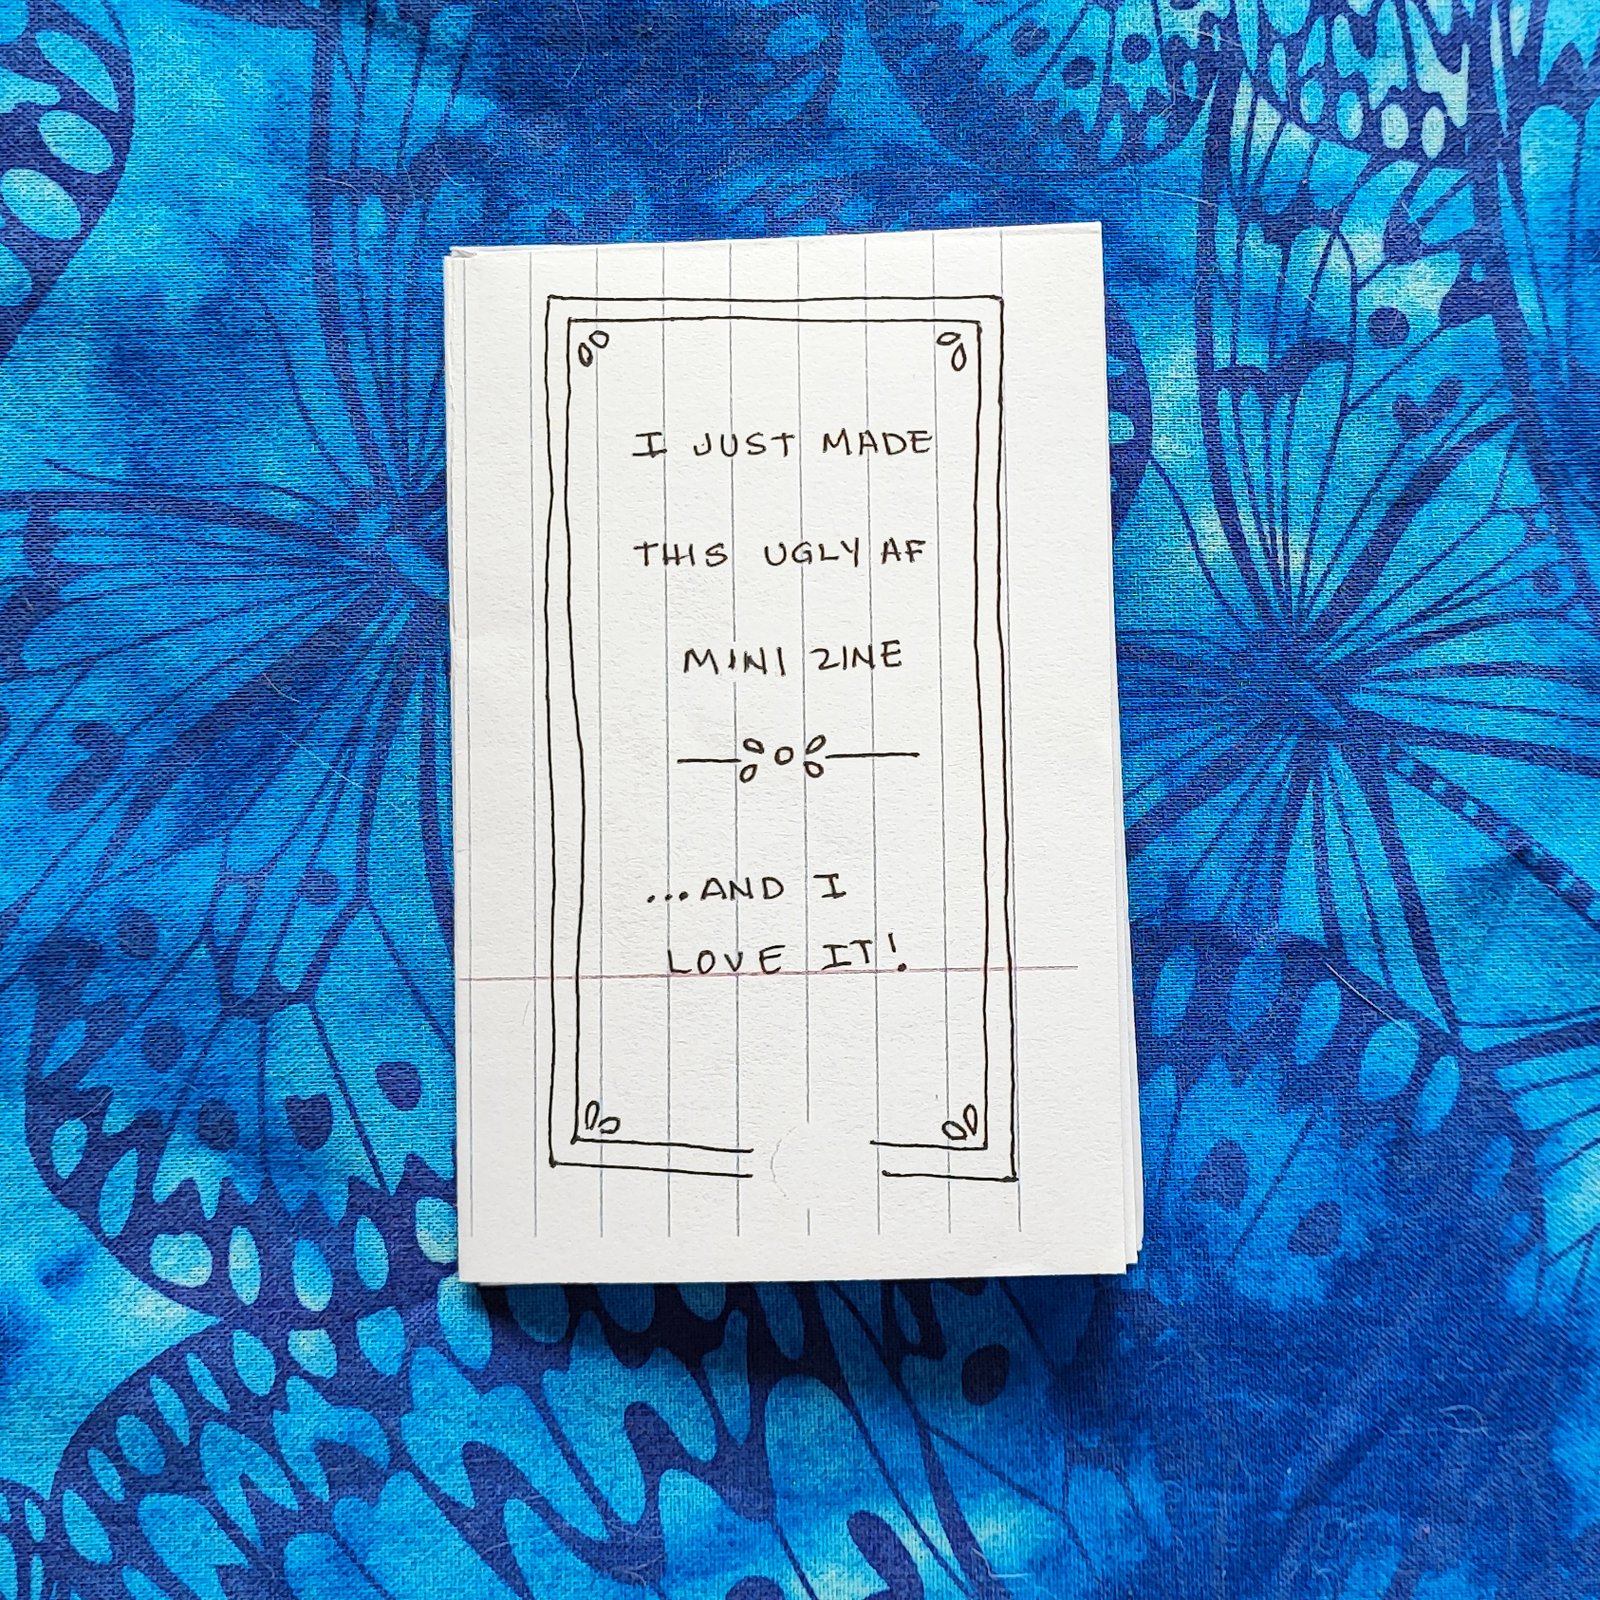 I JUST MADE
THIS UGLY AF
MINI ZINE
...AND I
LOVE IT!